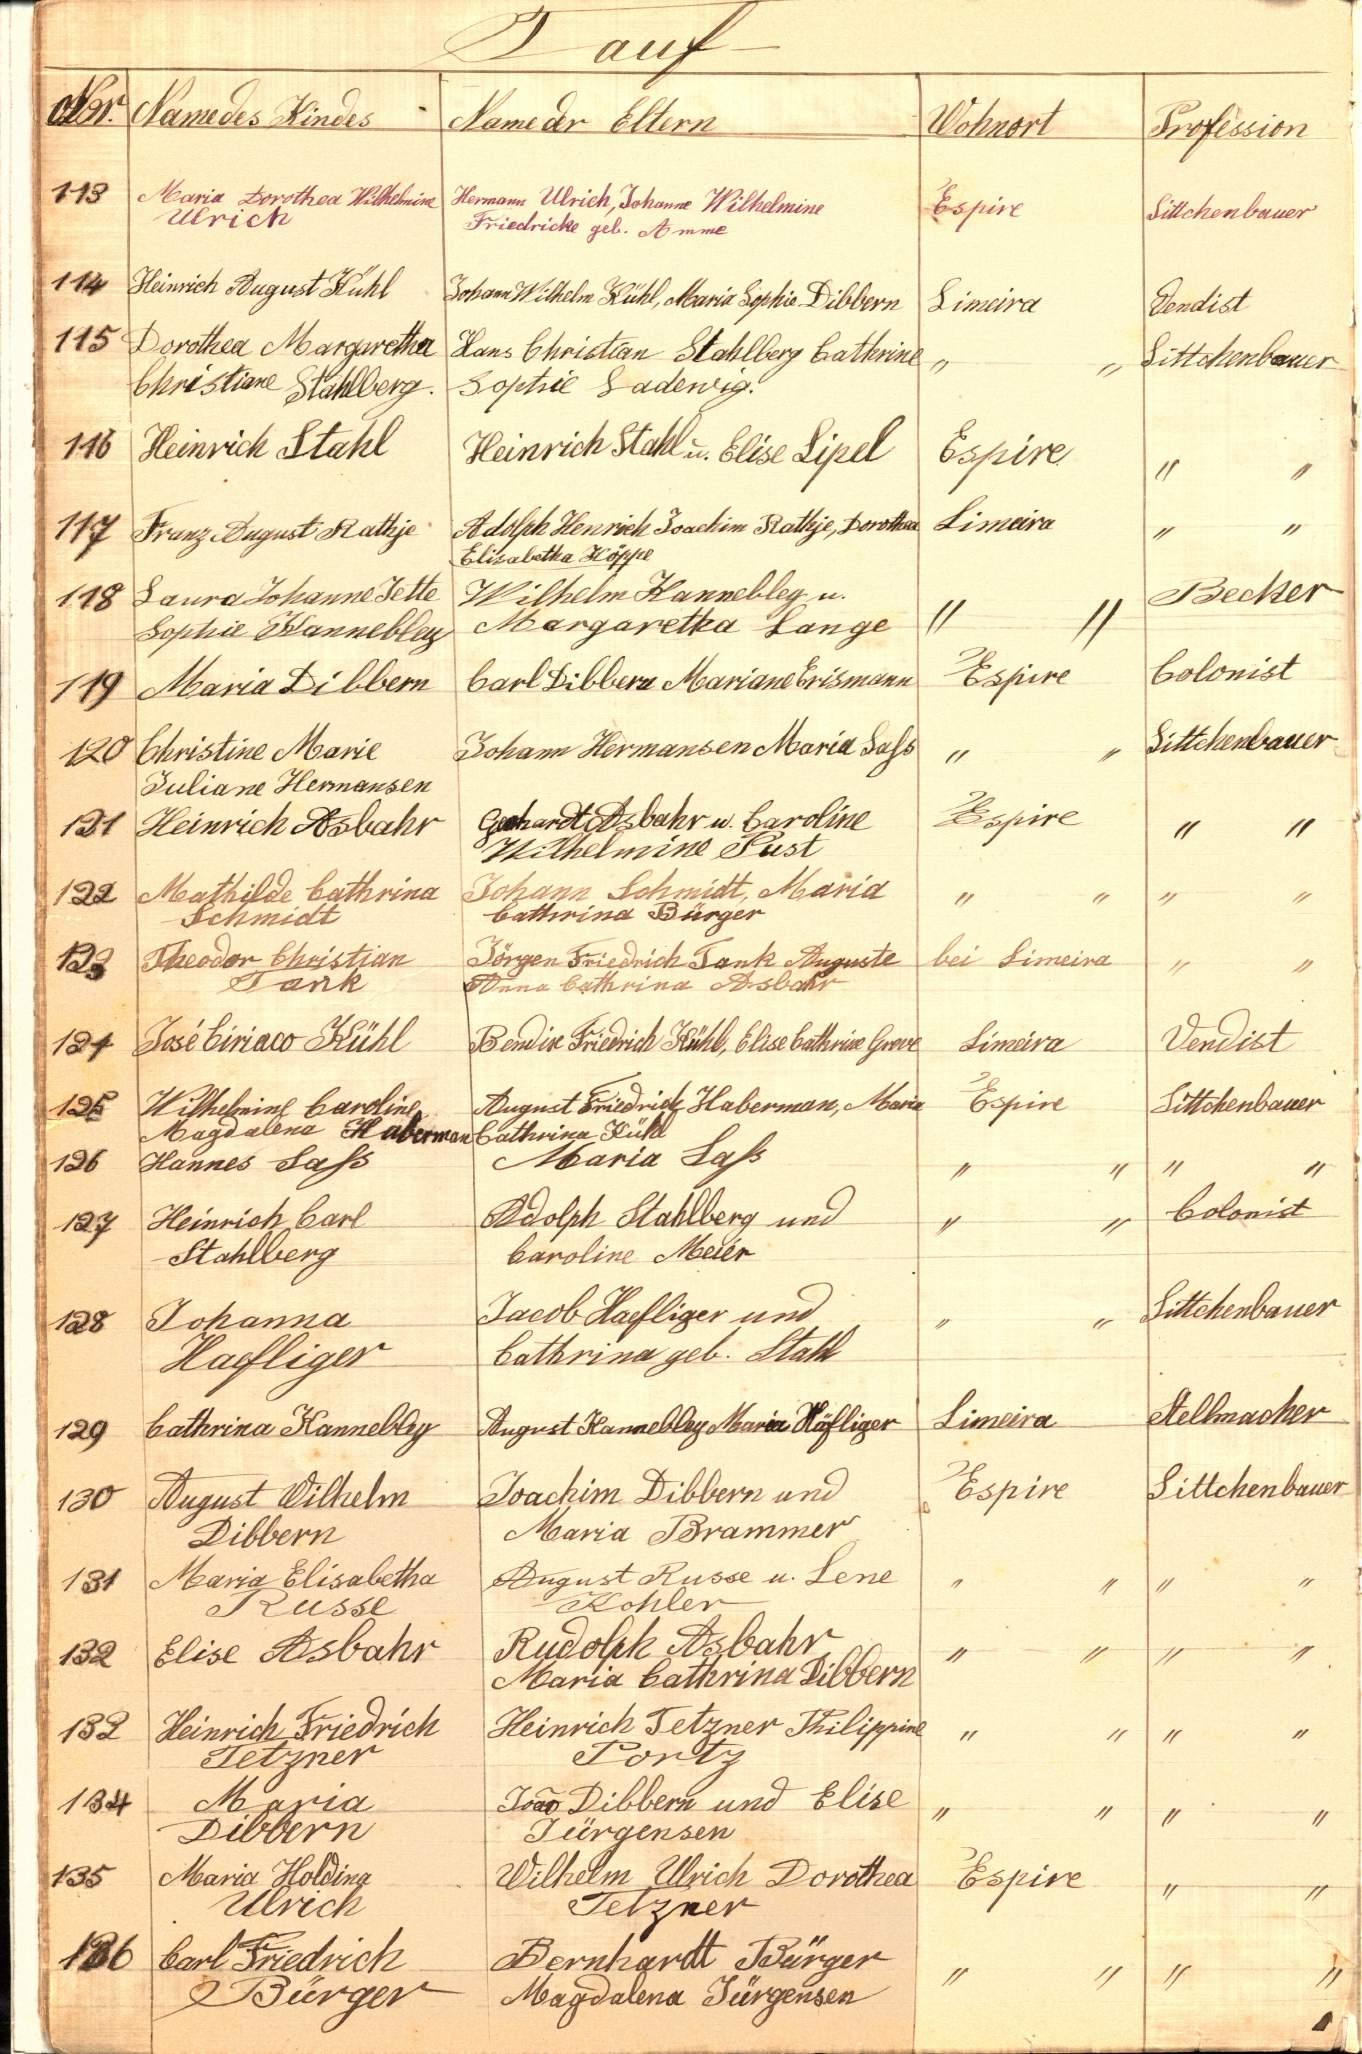 Tauf-
Nr. Name des Kindes Name der Eltern Wohnort Profession
113 Maria Dorothea Wilhelmine Hermann Ulrich, Johanne Wilhelmine Espire Sittchenbauer
Ulrich Friedricke geb. Amme
114 Heinrich August Kühl Johann Wilhelm Kühl, Maria Sophie Dibbern Limeira Vendist
115 Dorothea Margaretha Hans Christian Stahlberg Cathrine " " Sittchenbauer
Christiane Stahlberg. Sophie Ladewig.
116 Heinrich Stahl Heinrich Stahl u. Elise Lipel Espire " "
117 Franz August Rathje Adolph Henrich Joachim Rathje, Dorothea Limeira " "
Elisabetha Höppe
118 Laura Johanne Jette Wilhelm Kannebley u. " " Becker
Sophie Kannebley Margaretha Lange
119 Maria Dibbern Carl Dibbern Mariane Erismann Espire Colonist
120 Christine Marie Johann Hermansen Maria Saß " " Sittchenbauer
Juliane Hermansen
121 Heinrich Asbahr Gerhardt Asbahr u. Caroline Espire " "
Wilhelmine Pust
122 Mathilde Cathrina Johann Schmidt, Maria " " " "
Schmidt Cathrina Bürger
123 Theodor Christian Jörgen Friedrich Tank Auguste bei Limeira " "
Tank Anna Cathrina Asbahr
124 José Ciriaco Kühl Bendix Friedrich Kühl, Elise Cathrine Greve Limeira Vendist
125 Wilhelmine Caroline August Friedrich Haberman, Maria Espire Sittchenbauer
Magdalena Haberman Cathrina Kühl
126 Hannes Saß Maria Saß " " " "
127 Heinrich Carl Adolph Stahlberg und " " Colonist
Stahlberg Caroline Meier
128 Johanna Jacob Haefliger und " " Sittchenbauer
Haefliger Cathrina geb. Stahl
129 Cathrina Kannebley August Kannebley Maria Häfliger Limeira Stellmacher
130 August Wilhelm Joachim Dibbern und Espire Sittchenbauer
Dibbern Maria Brammer
131 Maria Elisabetha August Russe u. Lene " " " "
Russe Kohler
132 Elise Asbahr Rudolph Asbahr " " " "
Maria Cathrina Dibbern
132 Heinrich Friedrich Heinrich Tetzner Philippine " " " "
Tetzner Portz
134 Maria Joao Dibbern und Elise " " " "
Dibbern Jürgensen
135 Maria Holdina Wilhelm Ulrich Dorothea Espire " "
Ulrich Tetzner
136 Carl Friedrich Bernhardt Bürger " " " "
Bürger Magdalena Jürgensen